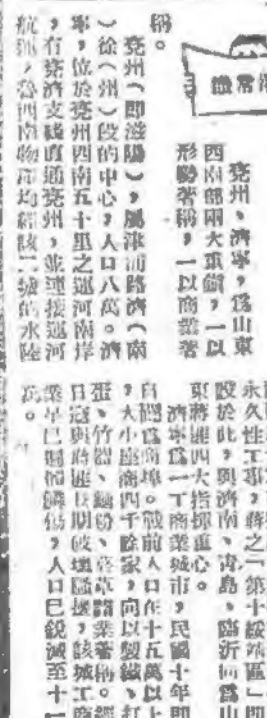 識常
兗州、濟寧,爲山東
西南部兩大重鎮,一以
形勢著稱,一以商業著
稱。
兗州(即滋陽),屬津浦路濟(南
)徐(州)段的中心,人口八萬。濟
寧,位於兗州西南五十里之運河南岸
,有兗濟支綫直通兗州,並連接運河
航運,魯西南物產均經該二城的水陸
永久性工事,蔣之「第十綏靖區」即
設於此,與濟南、青島、臨沂同爲山
東蔣匪四大指揮重心。
濟寧爲一工商業城市,民國十年即
自闢爲商埠。戰前人口在十五萬以上
,大小座商四千餘家,向以製鐵、打
蛋、竹器、麵粉、菸草諸業著稱。經
日寇與蔣匪長期破壞騷擾,該城工商
業早已遍體鱗傷,人口已銳減至十一
萬。